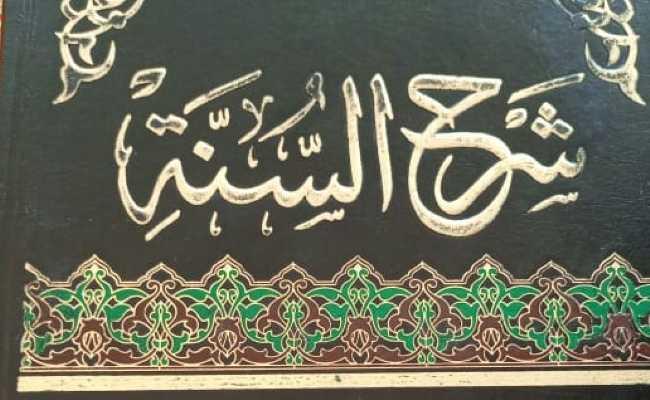 شَرْحُ السُّنَّةِ